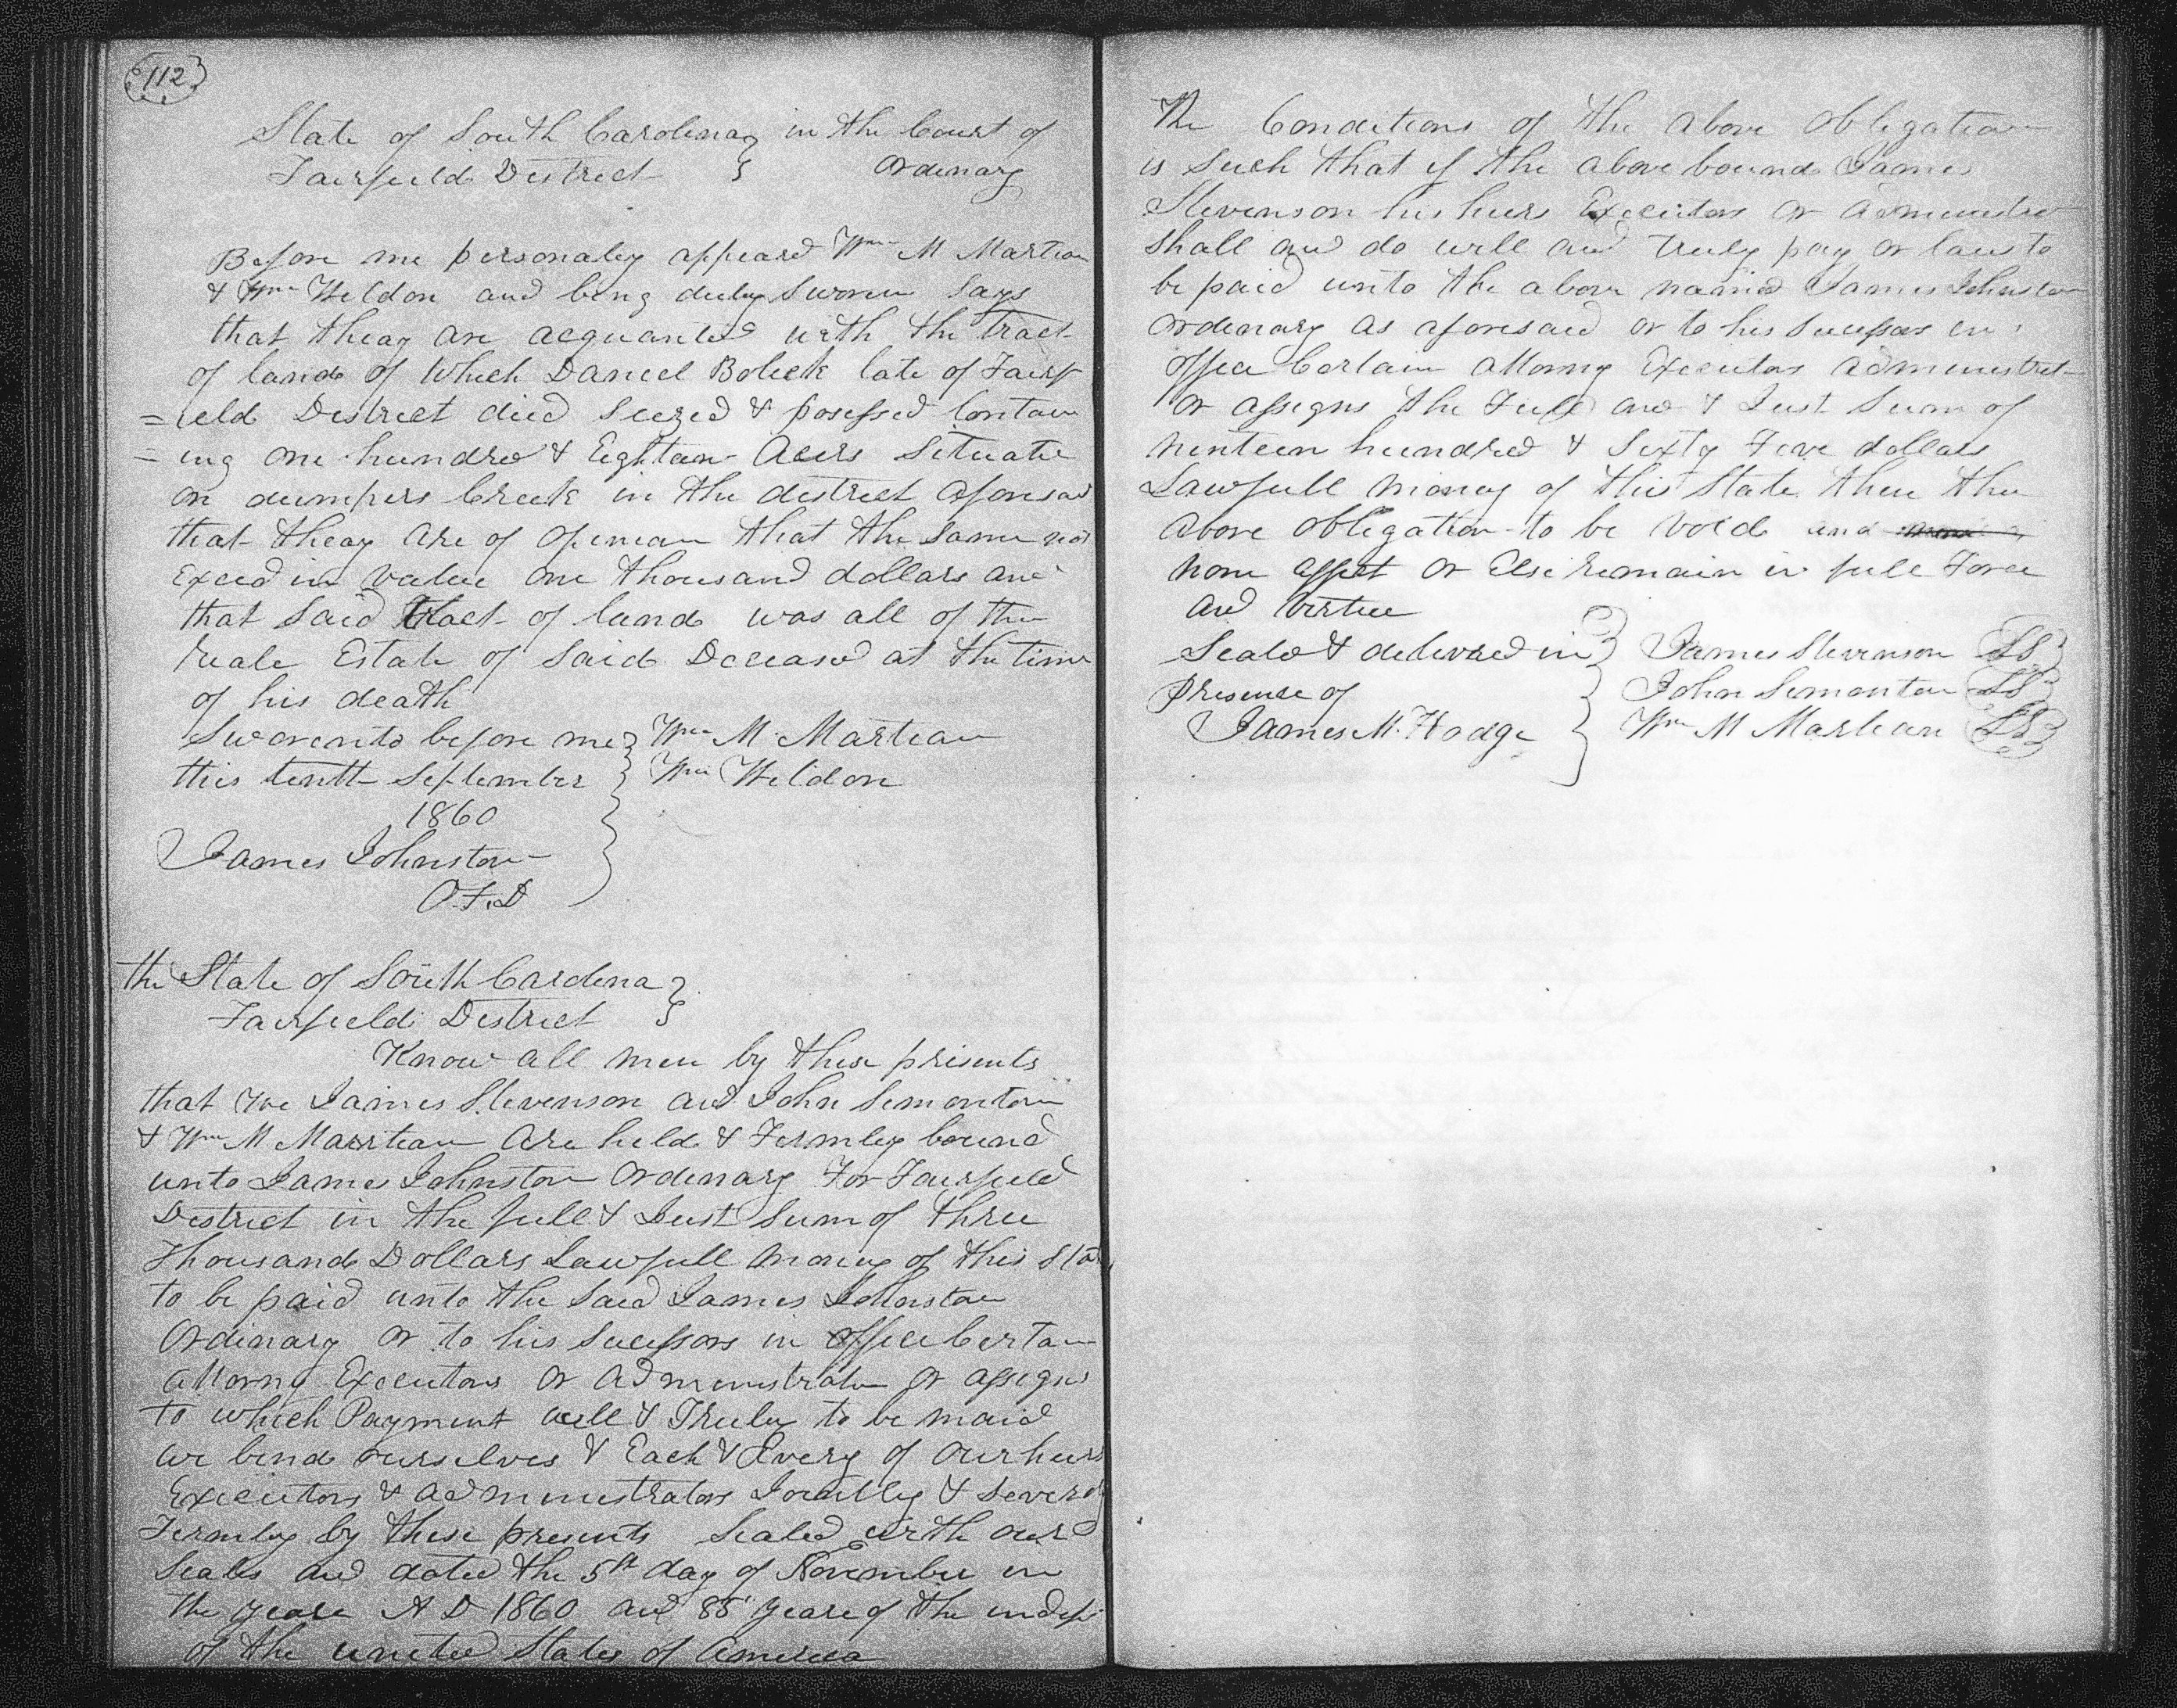 112
State of South Carolina } in the Court of
Fairfield District } Ordinary
Before me personaley appeard Wm M Martian
& Wm Weldon and being duley Sworn Says
that theay are acquanted with the tract
of land of Which Daniel Bolick late of Fairf
=ield District died Seezed & posessed Contain
=ing one hundred & Eightean Acers Situate
on dumpers Creek in the district aforesaid
that theay are of openion that the Same not
Exceed in value one thousand dollars and
that Said tract of land was all of the
reale Estate of Said Deceasd at the time
of his death
Sworn to before me } Wm M. Martian
this tenth September } Wm Weldon
1860
James Johnston
O.F.D
the State of South Carolina }
Fairfield District }
Know all men by these presents
that we James Stevenson and John Simonton
& Wm M Martian are held & Firmley bound
unto James Johnston Ordinary For Fairfield
District in the full & Just Sum of three
Thousand Dollars Lawfull money of this State
to be paid unto the Said James Johnston
Ordinary or to his Sucessors in office Certain
attorny Executors or administrators or assigns
to which Payment well & Truley to be maid
we bind ourselves & Each & Every of our heirs
Executors & administrators Jointley & Several
Firmley by these presents Sealed with our
Seals and dated the 5th day of November in
the yeare A D 1860 and 85 yeare of the indep
of the united States of America
The Conditions of the above obligation
is Such that if the above bound James
Stevenson his heirs Executors or administrs
Shall and do well and truly pay or caus to
be paid unto the above named James Johnston
Ordinary as aforesaid or to his Sucessors in
office Certain attorny Executors administrat
or assigns the Full and & Just Sum of
ninteen hundred & Sixty Five dollars
Lawfull money of this State then the
above obligation to be void and
none affect or Else remain in full Force
and virtue
Seald & deliverd in } James Stevenson LS
presense of } John Simonton LS
James M. Hodge } Wm M Martian LS